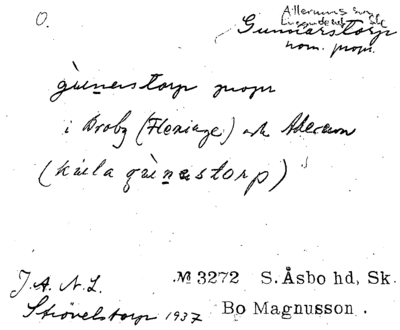 O.
Allerums sn
Luggude hd, Sk
Gunnarstorp
nom. propr.
gùnarstorp propr
i Broby (Fleninge) och Allerum
(kúla gùnastorp)
J.A.N.L.
Strövelstorp 1937
№ 3272 S. Åsbo hd, Sk.
Bo Magnusson.